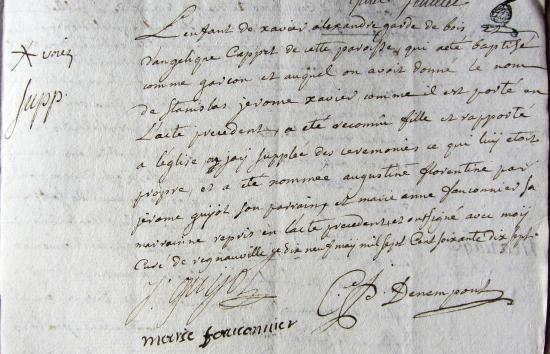 L'enfant de xavier alexandre garde de bois
* voiez
d'angelique Cappet de cette paroisse, qui a eté baptisé
comme garçon et auquel on avoit donné le nom
supp.
de Stanislas jerome xavier, comme il est porté en
L'acte precedent, a eté reconnu fille et rapporté
a l'église ou jay supplée des ceremonies ce qui luy etoit
propre et a ete nommée augustine florentine par
jérome guyot son parrain et marie anne fauconnier sa
marrainne repris en lacte precedent, et ont signé avec moy
Curé de regnauville le dix neuf may mil sept Cent soixante dix sept
J. Guyot
Denempont
marie fauconnier